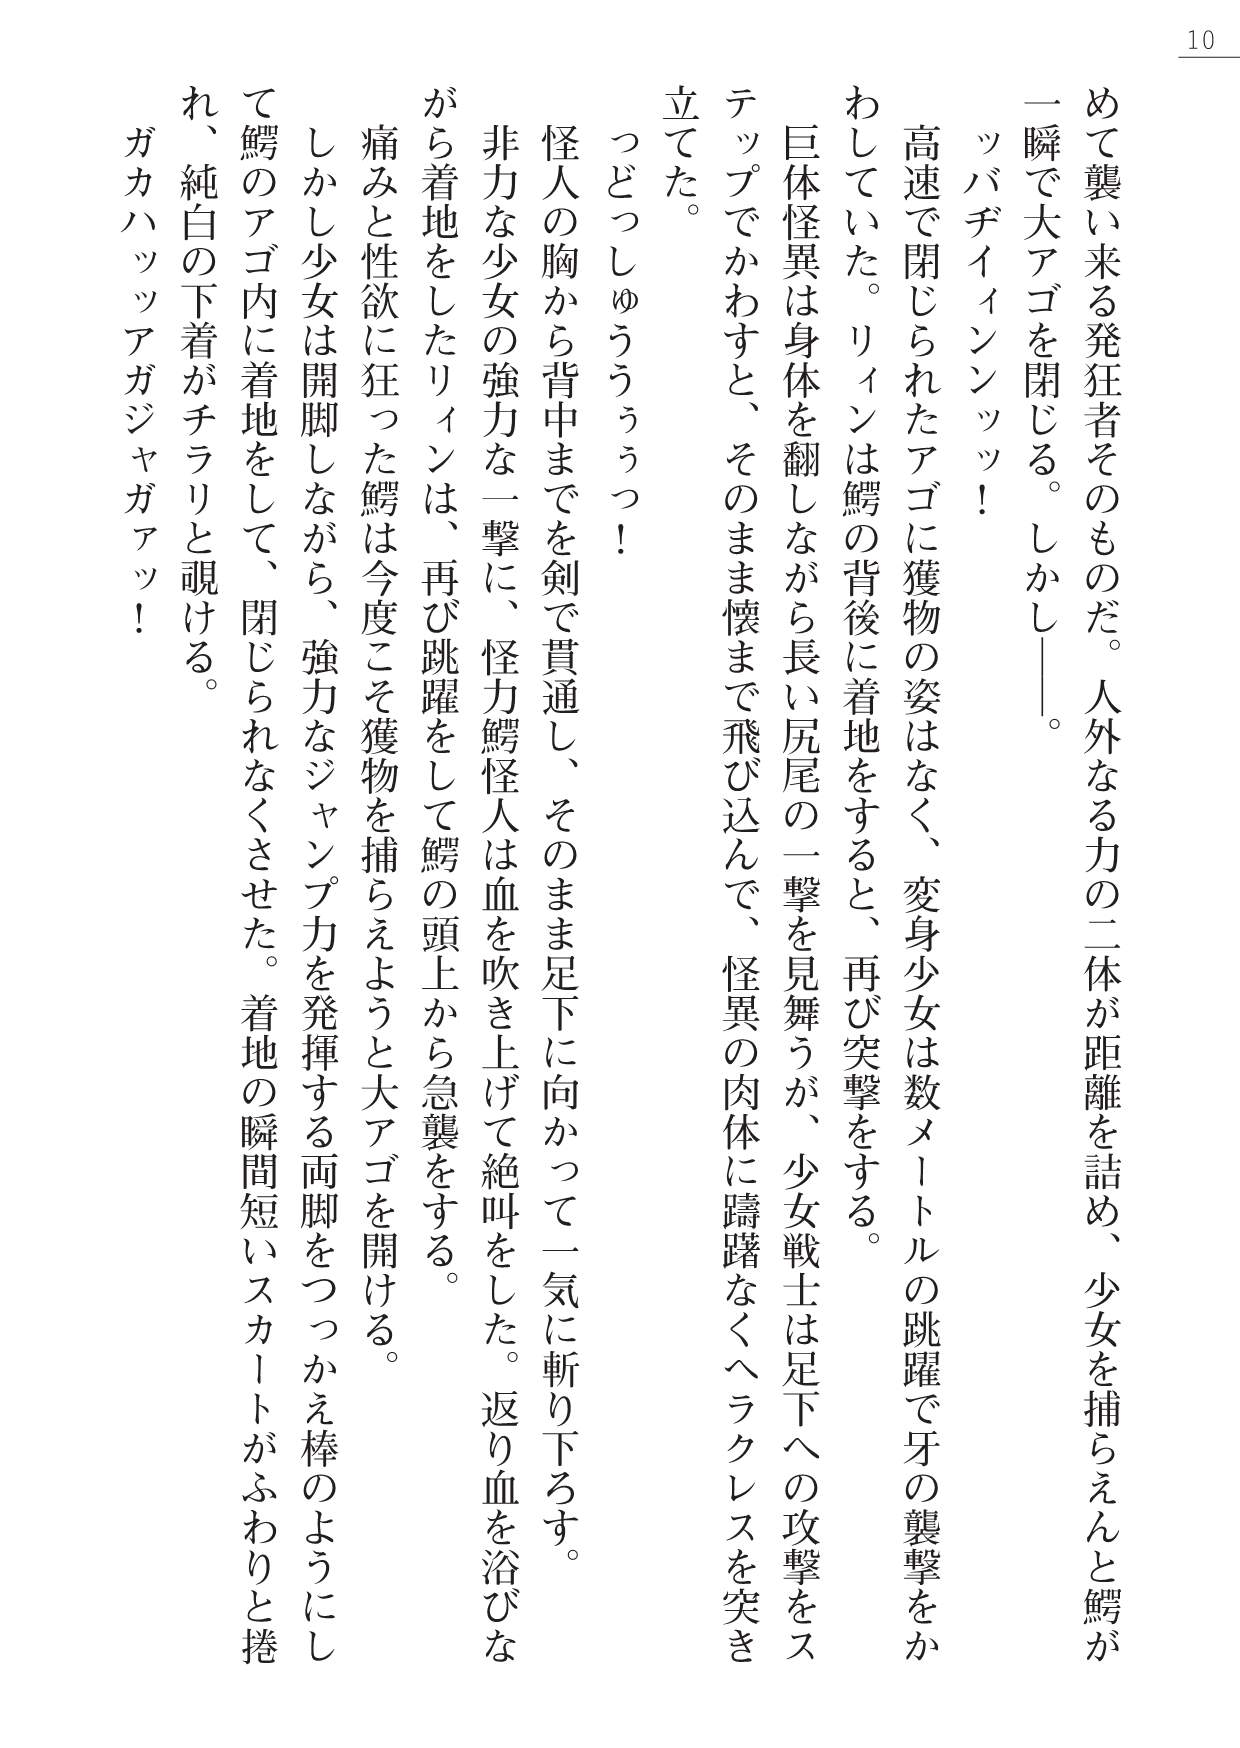 10
めて襲い来る発狂者そのものだ。人外なる力の二体が距離を詰め、少女を捕らえんと鰐が
一瞬で大アゴを閉じる。しかし――。
ッバヂイィンンッッ！
高速で閉じられたアゴに獲物の姿はなく、変身少女は数メートルの跳躍で牙の襲撃をか
わしていた。リィンは鰐の背後に着地をすると、再び突撃をする。
巨体怪異は身体を翻しながら長い尻尾の一撃を見舞うが、少女戦士は足下への攻撃をス
テップでかわすと、そのまま懐まで飛び込んで、怪異の肉体に躊躇なくヘラクレスを突き
立てた。
つどっしゅううぅぅっ！
怪人の胸から背中までを剣で貫通し、そのまま足下に向かって一気に斬り下ろす。
非力な少女の強力な一撃に、怪力鰐怪人は血を吹き上げて絶叫をした。返り血を浴びな
がら着地をしたリィンは、再び跳躍をして鰐の頭上から急襲をする。
痛みと性欲に狂った鰐は今度こそ獲物を捕らえようと大アゴを開ける。
しかし少女は開脚しながら、強力なジャンプ力を発揮する両脚をつっかえ棒のようにし
て鰐のアゴ内に着地をして、閉じられなくさせた。着地の瞬間短いスカートがふわりと捲
れ、純白の下着がチラリと覗ける。
ガカハッッアガジャガァッ！